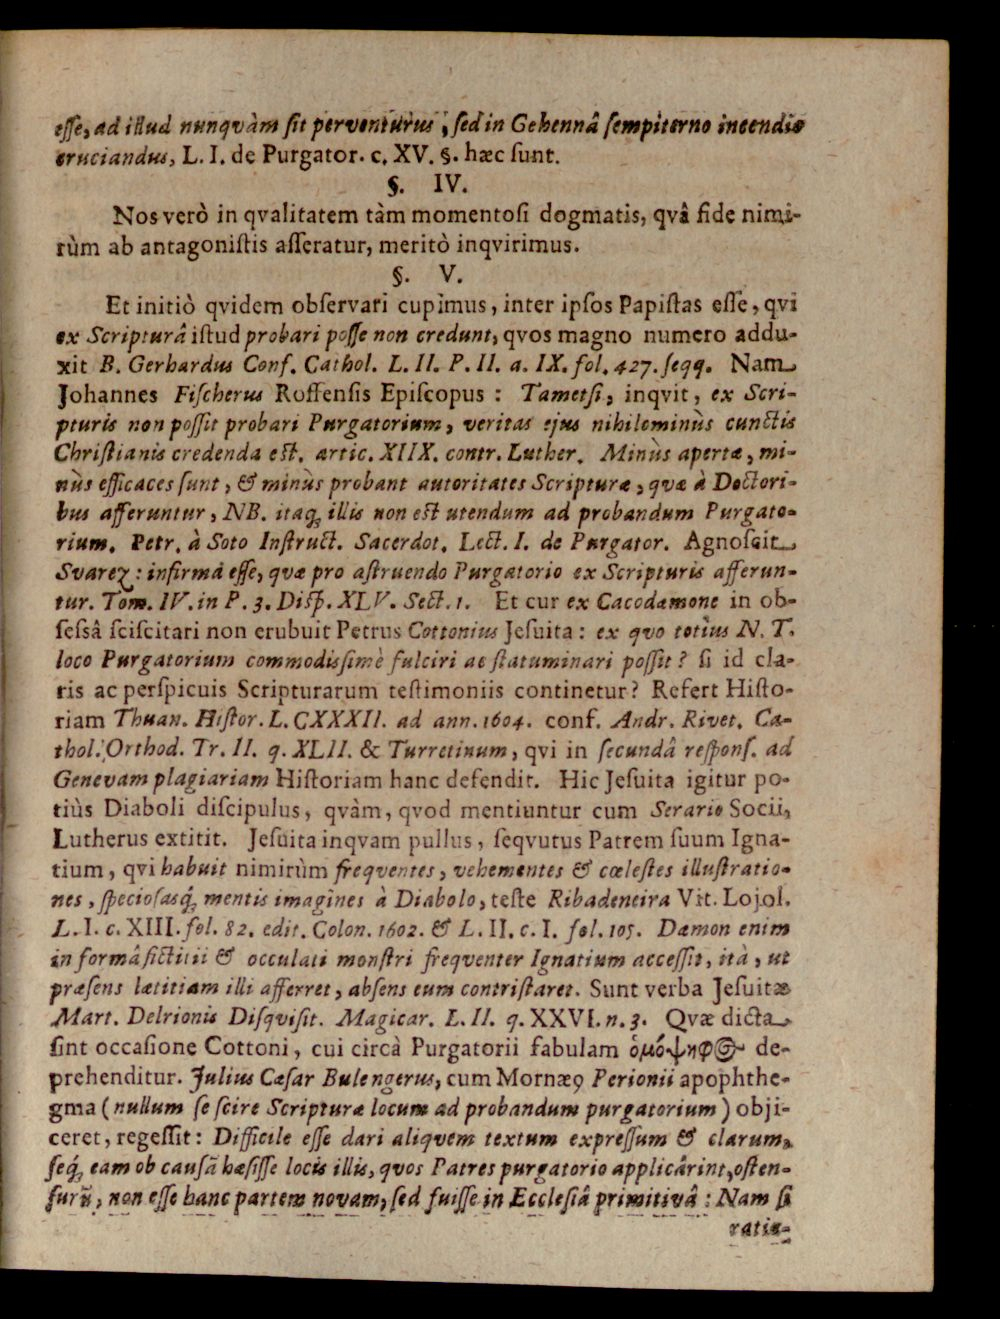 eſſe, ad illud nunqvàm ſit perventurus, ſed in Gehennâ ſempiterno incendio
cruciandus, L. I. de Purgator. c. XV. §. hæc ſunt.
§. IV.
Nos verò in qvalitatem tàm momentoſi dogmatis, qvâ fide nimi-
rùm ab antagoniſtis aſſeratur, meritò inqvirimus.
§. V.
Et initiò qvidem obſervari cupimus, inter ipſos Papiſtas eſſe, qvi
ex Scripturâ iſtud probari poſſe non credunt, qvos magno numero addu-
xit B. Gerhardus Conf. Cathol. L. II. P. II. a. IX. fol. 427. ſeqq. Nam
Johannes Fiſcherus Roffenſis Epiſcopus: Tametſi, inqvit, ex Scri-
pturis non poſſit probari Purgatorium, veritas ejus nihilominùs cunctis
Chriſtianis credenda eſt. artic. XIIX. contr. Luther. Minùs apertæ, mi-
nùs efficaces ſunt, & minùs probant autoritates Scripturæ, qvæ à Doctori-
bus afferuntur, NB. itaq; illis non eſt utendum ad probandum Purgato-
rium. Petr. à Soto Inſtruct. Sacerdot. Lect. I. de Purgator. Agnoſcit
Svarez: infirma eſſe, qvæ pro aſtruendo Purgatorio ex Scripturis afferun-
tur. Tom. IV. in P. 3. Diſp. XLV. Sect. 1. Et cur ex Cacodæmone in ob-
ſeſsâ ſciſcitari non erubuit Petrus Cottonius Jeſuita: ex qvo totìus N. T.
loco Purgatorium commodiſſimè fulciri ac ſtatuminari poſſit? ſi id cla-
ris ac perſpicuis Scripturarum teſtimoniis continetur? Refert Hiſto-
riam Thuan. Hiſtor. L. CXXXII. ad ann. 1604. conf. Andr. Rivet. Ca-
thol. Orthod. Tr. II. q. XLII. & Turretinum, qvi in ſecundâ reſponſ. ad
Genevam plagiariam Hiſtoriam hanc defendit. Hic Jeſuita igitur po-
tiùs Diaboli diſcipulus, qvàm, qvod mentiuntur cum Serario Socii,
Lutherus extitit. Jeſuita inqvam pullus, ſeqvutus Patrem ſuum Igna-
tium, qvi habuit nimirùm freqventes, vehementes & cœleſtes illuſtratio-
nes, ſpecioſasq; mentis imagines à Diabolo, teſte Ribadeneira Vit. Lojol.
L. I. c. XIII. fol. 82. edit. Colon. 1602. & L. II. c. I. fol. 105. Dæmon enim
in formâ fictitii & occulati monſtri freqventer Ignatium acceſſit, ità, ut
præſens lætitiam illi afferret, abſens eum contriſtaret. Sunt verba Jeſuitæ
Mart. Delrionis Diſqviſit. Magicar. L. II. q. XXVI. n. 3. Qvæ dicta
ſint occaſione Cottoni, cui circà Purgatorii fabulam ὁμόψηφ⊕ de-
prehenditur. Julius Cæſar Bulengerus, cum Mornæꝰ Perionii apophthe-
gma (nullum ſe ſcire Scripturæ locum ad probandum purgatorium) obji-
ceret, regeſſit: Difficile eſſe dari aliqvem textum expreſſum & clarum,
ſeq; eam ob cauſã hæſiſſe locis illis, qvos Patres purgatorio applicârint, oſten-
ſurũ, non eſſe hanc partem novam, ſed fuiſſe in Eccleſiâ primitivâ: Nam ſi
ratio-